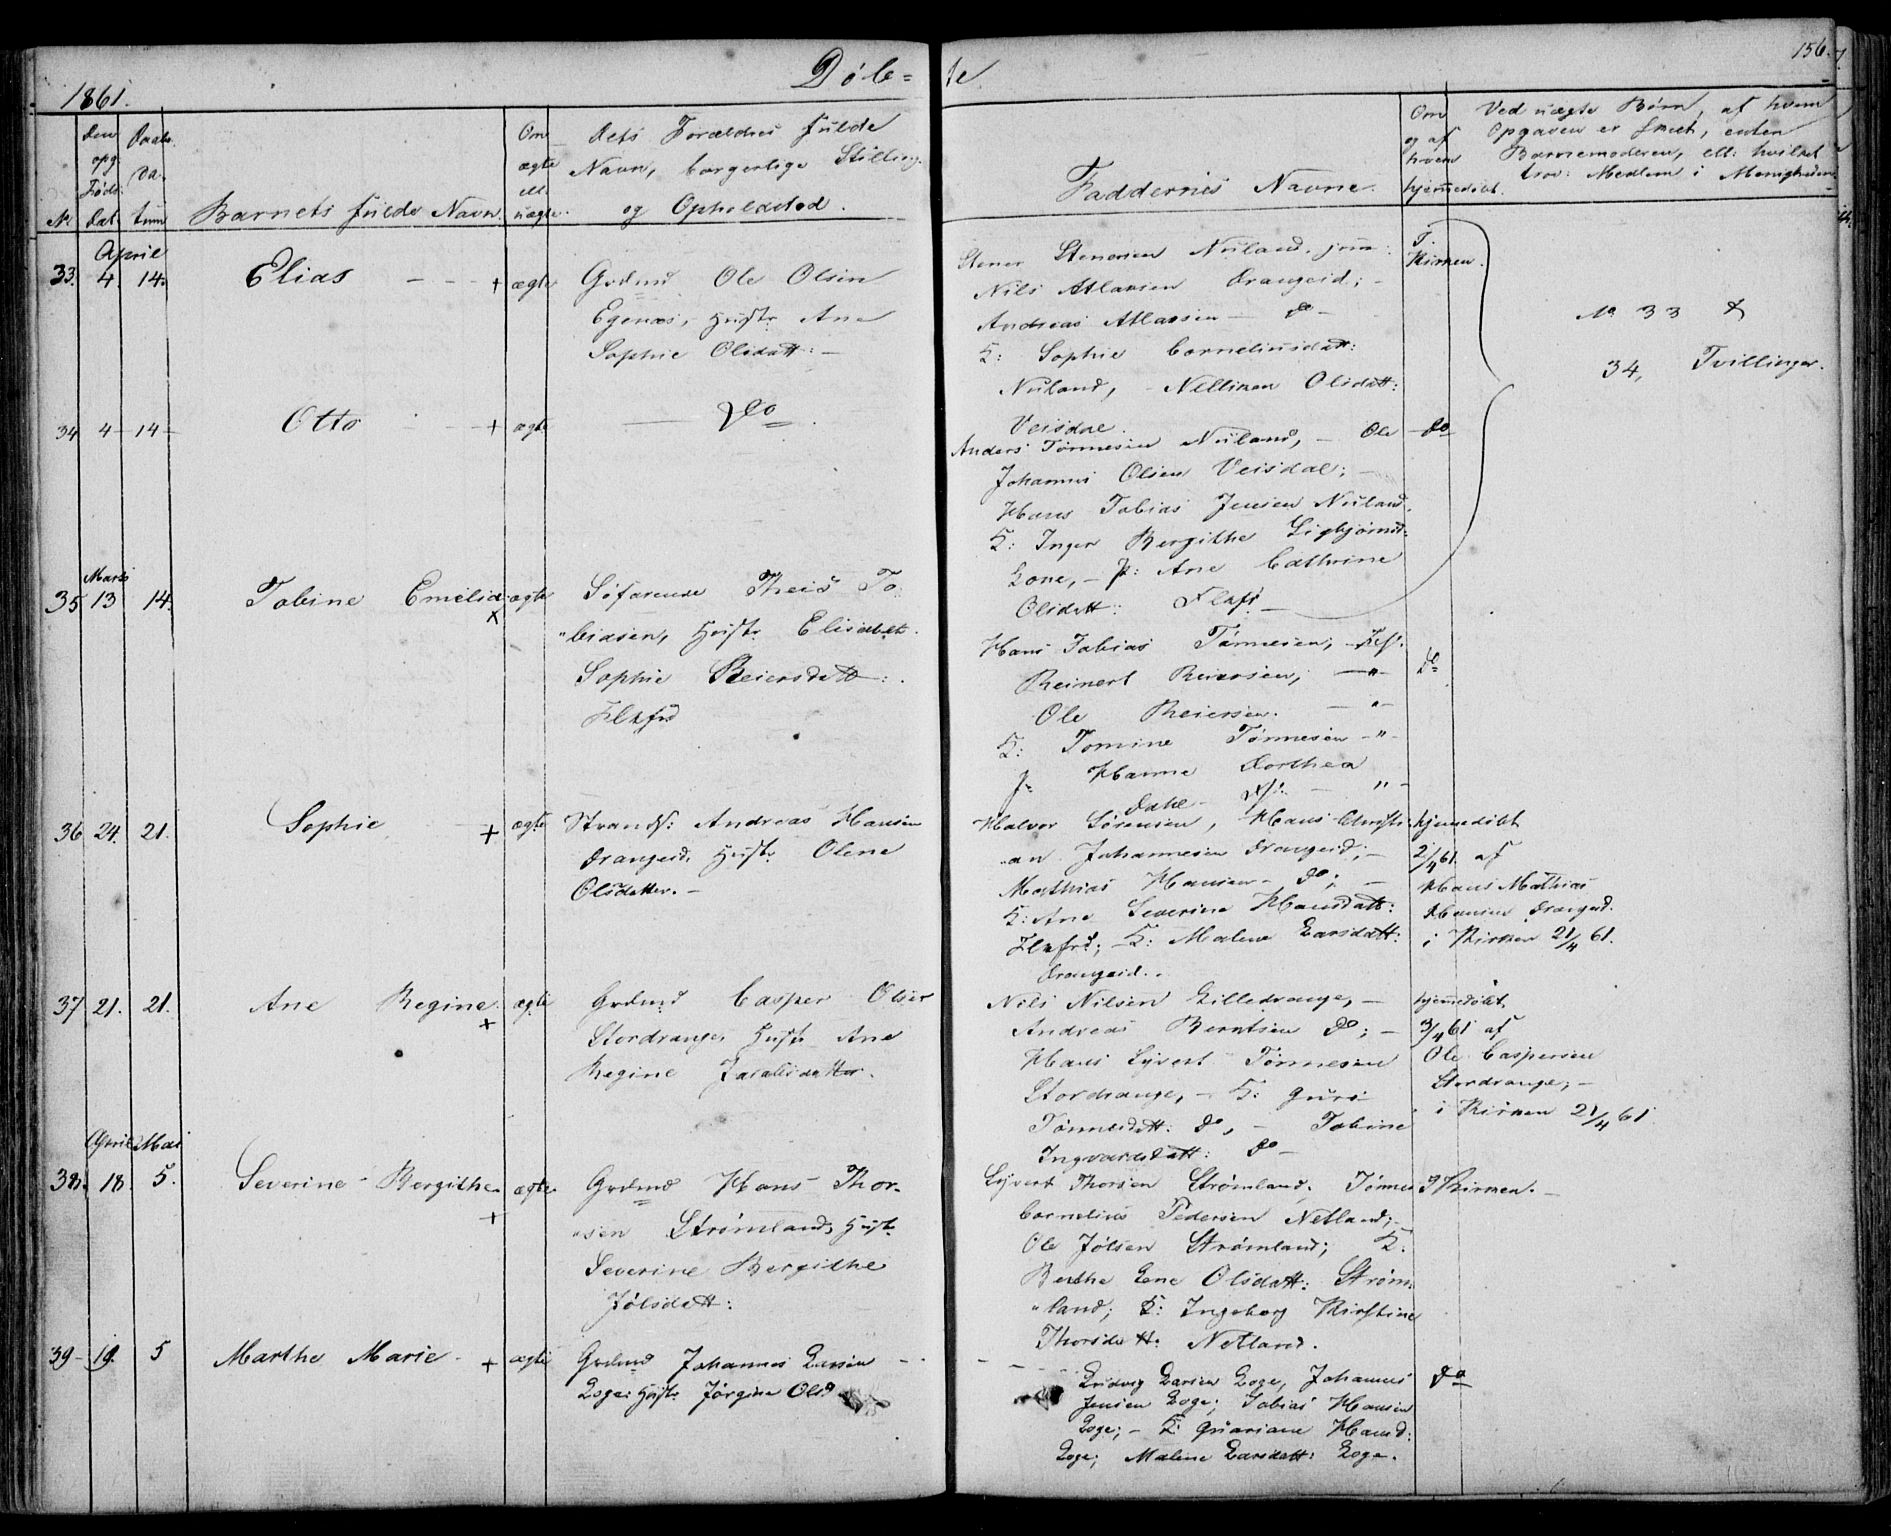 156.
Døb= te
1861.
No
Den opg Føds: Dat.
Daabs Da- tum
Barnets fulde Navn.
Om ægte ell. uægte.
Dets Forældres fulde
Navn, borgerlige Stilling
og Opholdsted.
Faddernes Navne.
Om og af hvem hjemmedøbt.
Ved uægte Børn, af hvem
Opgaven er skeet, enten
Barnemoderen, ell: hvilket
trov: Medlem i Menigheden
April
33. 4 14. Elias + ægte
Grdmd Ole Olsen
Egenæs, Hustr Ane
Sophie Olsdatt: —
Stener Stenersen Nuland. jun:
Nils Atlaksen Drangeid; —
Andreas Atlaksen — do —
K: Sophie Corneliusdatt:
Nuland, — Nelliken Olsdatt:
Veisdal.
I Kirken.
No 33 &
34, Tvillinger.
34 4 14 Otto + ægte
— do — .
Anders Tønnesen Nuland, — Ole
Johannes Olsen Veisdal; —
Hans Tobias Jensen Nuland.
K: Inger Bergithe Sigbjørnsd:
Loge, — P: Ane Cathrine
Olsdatt: Flkfd —
do
Marts
35 13 14. Tobine Emelie + ægte
Søfarende Theis To=
"biasen, Hustr Elisabeth
Sophie Reiersdatt:
Flkfd
Hans Tobias Tønnesen, Flkf.
Reinert Reiersen, — " —
Ole Reiersen. — " —
K: Tomine Tønnesen — " —
P: Hanne Dorthea
Dahl — " —
do
36 24. 21. Sophie + ægte
Strands: Andreas Hansen
Drangeid, Hustr Olene
Olsdatter. —
Halvor Sørensen, Hans Christi-
"an Johannesen Drangeid; —
Mathias Hansen — do; —
K: Ane Severine Hansdatt:
Flkfrd; K: Malene Larsdatt:
Drangeid.
hjemmedøbt
2/4 61. af
Hans Mathias
Hansen Drangeid.
i Kirken 21/4 61.
37 21. 21. Ane Regine + ægte
Grdmd Casper Olsen
Stordrange, Hustr Ane
Regine Jacobsdatter.
Nils Nilsen Lilledrange, —
Andreas Berntsen do; —
Hans Syvert Tønnesen
Stordrange, — K: Guri
Tønnesdatt: do, — Tobine
Ingvaldsdatt: do —
hjemmedøbt
3/4 61 af
Ole Caspersen
Stordrange; —
i Kirken 21/4 61
April Mai
38. 18. 5. Severine Bergithe + ægte
Grdmd Hans Thor-
"sen Strømland, Hustr.
Severine Bergithe
Jølsdatt:
Syvert Thorsen Strømland. Tønnes
Cornelius Pedersen Netland; —
Ole Jølsen Strømland; K:
Berthe Lene Olsdatt: Strøm-
"land; K: Ingeborg Kirstine
Thorsdatt: Netland.
I Kirken. —
39 19. 5 Marthe Marie + ægte
Grdmd Johannes Larsen
Loge: Hustr Jørgine Olsd
Ludvig Larsen Loge, Johannes
Jensen Loge; Tobias Hansen
Loge; — K: Guriane Hansd:
Loge; Malene Larsdatt: Loge.
do